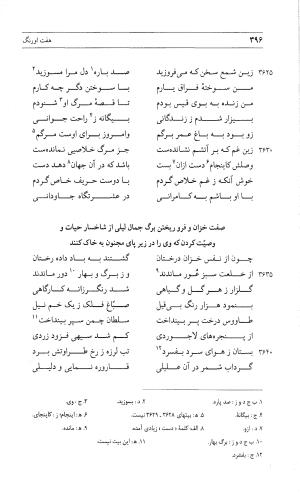 ۳۹۶ هفت اورنگ
۳۶۲۵ زین شمع سخن که می‌فروزید صد باره۱ دل مرا مسوزید۲
من سوختهٔ فراق یارم با سوختن دگر چه کارم
من زنده به بوی قیس بودم تا قصهٔ مرگ او۳ شنودم
بیزار شدم ز زندگانی بیگانه ز۴ راحت جوانی
زو بود به باغ عمر برگم وامروز برای اوست مرگم۵
۳۶۳۰ زین غم که بر آتشم نشانده‌ست جز مرگ خلاصیی نمانده‌ست
وصلش کاینجام۶ دست ازان۷ بست باشد که در آن جهان۸ دهد دست
خوش آنکه ز غم خلاص گردم با دوست حریف خاص گردم
با او باشم به کامرانی در عشرتگاه جاودانی
صفت خزان و فرو ریختن برگ جمال لیلی از شاخسار حیات و
وصیّت کردن که وی را در زیر پای مجنون به خاک کنند
چون از نفس خزان درختان گشتند به باد داده رختان
۳۶۳۵ از خلعت سبز عور ماندند۹ وز برگ و بهار۱۰ دور ماندند
گلزار ز هر گل و گیاهی شد رنگرزانه کارگاهی
بنمود هزار رنگ بی‌قیل صبّاغ فلک ز یک خم نیل
طاووس درخت پر بینداخت سلطان چمن سپر بینداخت۱۱
از پنجره‌های لاجوردی کم شد سیهی فزود زردی
۳۶۴۰ بستان ز هوای سرد بفسرد۱۲ تب لرزه ز رخ طراوتش برد
گرداب شمر در آن علیلی قاروره نمایی و دلیلی
۱. ب ج د و ز: صد پاره. ۲. د: بسوزید. ۳. ج: وی.
۴. ج: بیگانهٔ. ۵. ه: بیتهای ۳۶۲۸، ۳۶۲۹ نیست. ۶. ه: اینجام؛ ز: کاینجای.
۷. د: ازو. ۸. الف کلمهٔ «دست» زیادی آمده. ۹. ه: مانده.
۱۰. ب ج د و ز: برگ بهار. ۱۱. ه: این بیت نیست.
۱۲. ج: بفشرد.